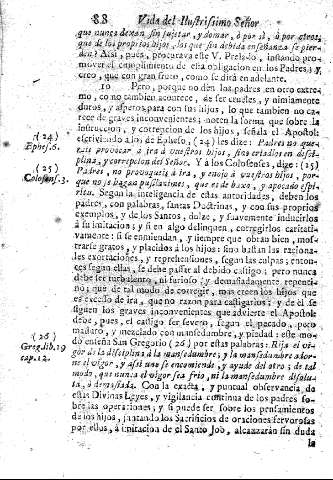 88 Vida del Ilustrissimo Señor
que nunca dexan sin sujetar, y domar, ò por sì, ò por otros,
que de los propios hijos, los que sin debida enseñanza se pier-
den? Assi, pues, procurava este V. Prelado, instando pro-
mover el cumplimiento de esta obligacion en los Padres; y
creo, que con gran fruto, como se dirà en adelante.
10 Pero, porque no dèn los padres en otro extre-
mo, co no tambien acontece, de ser crueles, y nimiamente
duros, y asperos para con sus hijos, lo que tambien no ca-
rece de graves inconvenientes; noten la forma que sobre la
instruccion, y correpcion de los hijos, señala el Apostol:
escriviendo a los de Epheso, (24) les dize: Padres no que-
rais provocar à ira à vuestros hijos, sino criadlos en disci-
plina, y correpcion del Señor. Y à los Colosenses, dize: (25)
Padres, no provoqueis à ira, y enojo à vuestros hijos, por-
que no se hagan pusilanimes, que es de baxo, y apocado espi-
ritu. Segun la inteligencia de estas autoridades, deben los
padres, con palabras, santas Doctrinas, y con sus propios
exemplos, y de los Santos, dulze, y suavemente inducirlos
à su imitacion; y si en algo delinquen, corregirlos caritati-
vamente: si se enmiendan, y siempre que obran bien, mos-
trarse gratos, y placidos à los hijos: sino bastan las razona-
les exortaciones, y reprehensiones, segun las culpas; enton-
ces segun ellas, se debe passar al debido castigo; pero nunca
debe ser turbulento, ni furioso; y demasiadamente repenti-
no; que de tal modo de corregir, mas creen los hijos que
es excesso de ira, que no razon para castigarlos; y de èl se
siguen los graves inconvenientes que advierte el Apostol:
debe, pues, el castigo ser severo, segun el pecado, pero
maduro, y mezclado con mansedumbre, y piedad: este mo-
do enseña San Gregorio (26) por estas palabras: Rija el vi-
gor de la disciplina à la mansedumbre; y la mansedumbre ador-
ne el vigor, y assi uno se encomiende, y ayude del otro; de tal
modo, que nunca el vigor sea frio, ni la mansedumbre dissolu-
ta, ò demasiada. Con la exacta, y puntual observancia de
estas Divinas Leyes, y vigilancia continua de los padres so-
bre las operaciones, y si puede ser, sobre los pensamientos
de los hijos, juntando los Sacrificios de oraciones fervorosas
por ellos, à imitacion de el Santo Job, alcanzaràn sin duda
la
(24)
Ephes. 6.
(25)
Colosens. 3.
(26)
Greg. lib. 19
cap. 12.